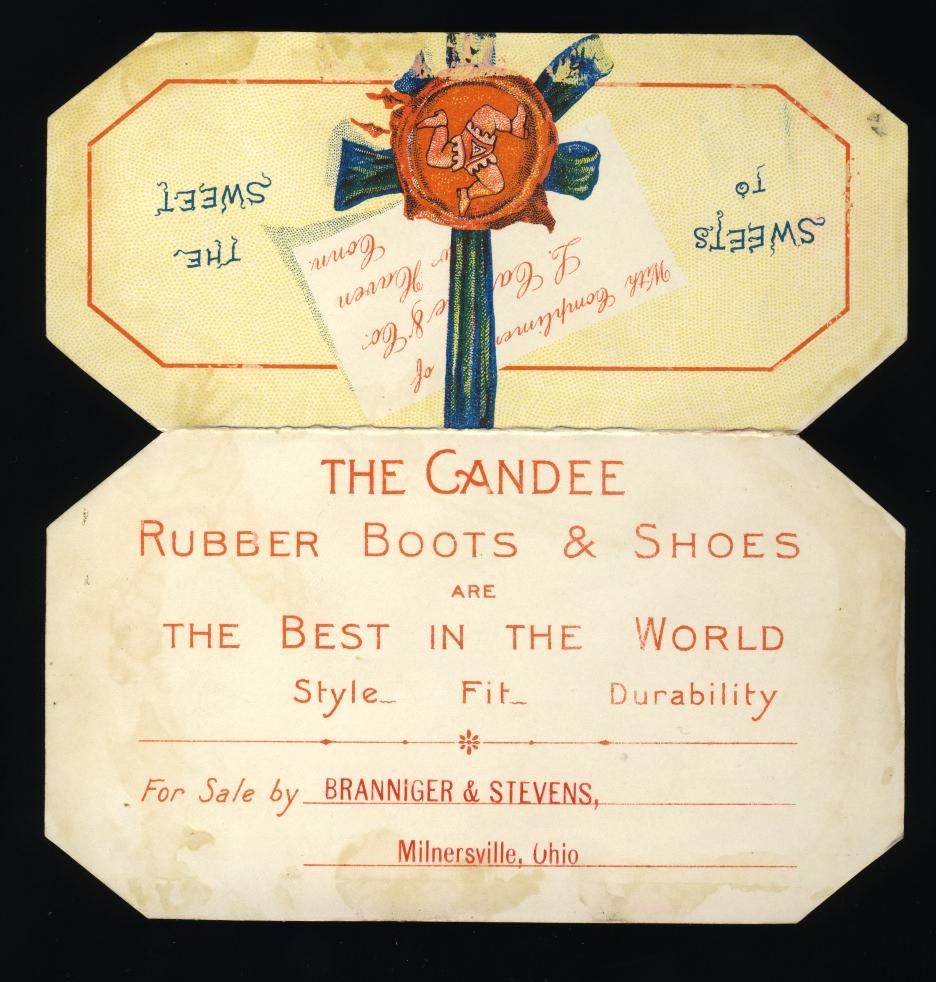 SWEETS
TO
THE
SWEET
With Complimen of
L. Ca e & Co.
w Haven
Conn.
THE CANDEE
RUBBER BOOTS & SHOES
ARE
THE BEST IN THE WORLD
Style Fit Durability
For Sale by BRANNIGER & STEVENS,
Milnersville, Ohio